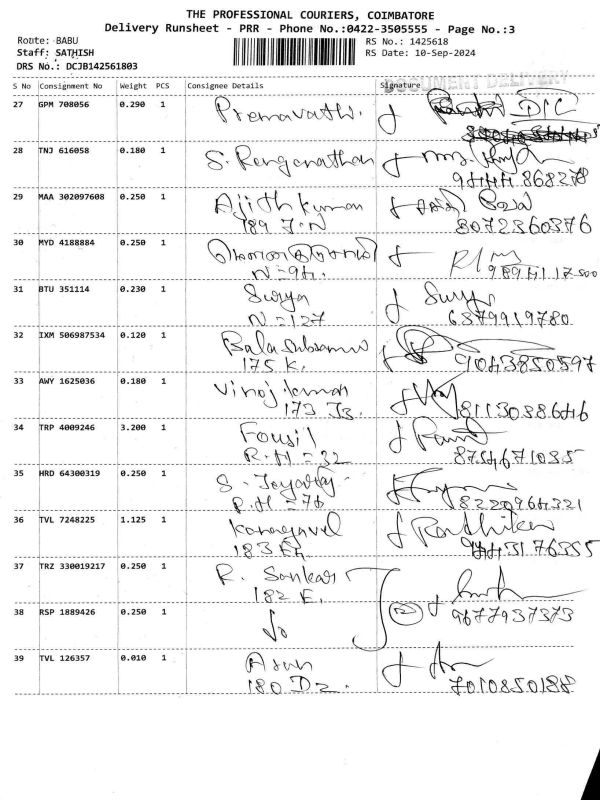 THE PROFESSIONAL COURIERS, COIMBATORE
Delivery Runsheet - PRR - Phone No.:0422-3505555 - Page No.:3
Route: BABU
RS No.: 1425618
Staff: SATHISH
RS Date: 10-Sep-2024
DRS No.: DCJB142561803
DOCUMENT DELIVERY
S No Consignment No Weight PCS Consignee Details Signature
27 GPM 708056 0.290 1 Premavathi.
28 TNJ 616058 0.180 1 S. Renganathan
868278
29 MAA 302097608 0.250 1 Ajithkumar
189 J.N 8072360376
30 MYD 4188884 0.250 1
N-94.
31 BTU 351114 0.230 1 Surya Surya
N-127 6379919780
32 IXM 506987534 0.120 1 Balasubramani
175 K. 9043850597
33 AWY 1625036 0.180 1 Vinoj kumar
173 J3. 8113038646
34 TRP 4009246 3.200 1 Fousil
R.H-32 8754671035
35 HRD 64300319 0.250 1 S. Jeyaraj
R.H-76 8220964321
36 TVL 7248225 1.125 1 Kanagavel Radhika
183 9443176355
37 TRZ 330019217 0.250 1 R. Sankar
182 E.
38 RSP 1889426 0.250 1 9677937373
39 TVL 126357 0.010 1 Arun
180 D2. 7010850188